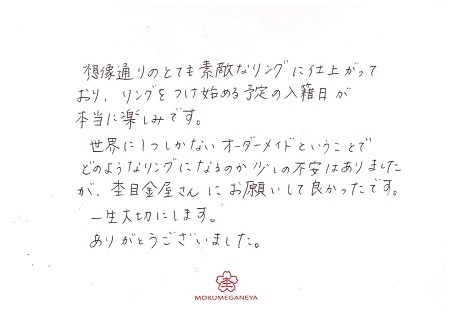 想像通りのとても素敵なリングに仕上がって
おり、リングをつけ始める予定の入籍日が
本当に楽しみです。
世界に1つしかないオーダーメイドということで
どのようなリングになるのか少しの不安はありました
が、杢目金屋さんにお願いして良かったです。
一生大切にします。
ありがとうございました。
MOKUMEGANEYA